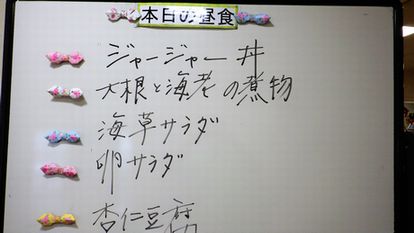 本日の昼食
ジャージャー丼
大根と海老の煮物
海草サラダ
卵サラダ
杏仁豆腐